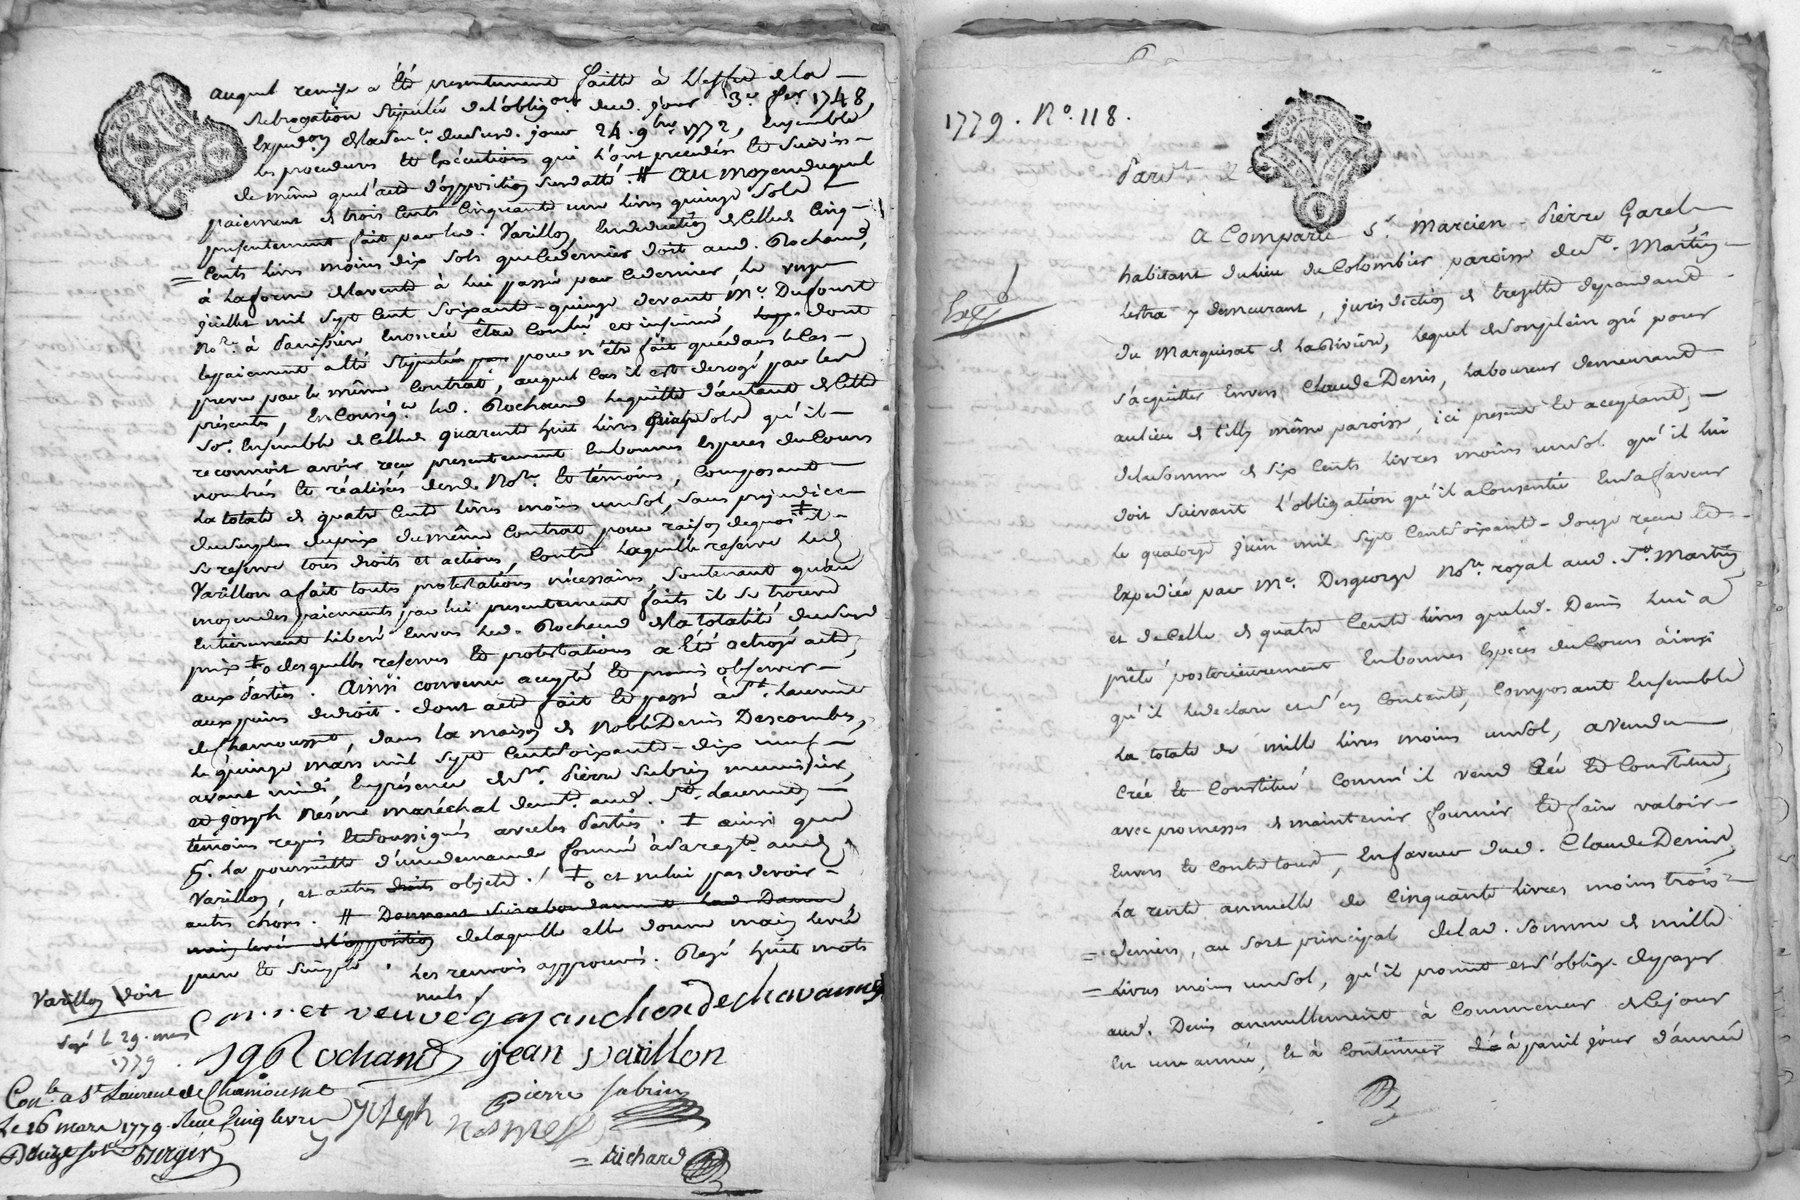 auquel remise a été presentement faitte à l'effet de la
subrogation stipulée de l'oblig.on dud. jour 3.e fer 1748,
Expéd.on de la sen.ce dudud. jour 24. 9bre 1772, Ensemble
les procedures et Exécutions qui l'ont precedés et suivis
de même que l'acte d'opposition sur datté. # au moyen duquel
paiement de trois cents Cinquante une livres quinze sols
presentement fait par led. Varillon En deduction de celle de Cinq
Cents livres moins dix sols que ce dernier doit aud. Rochand,
à la forme de la vente à lui passée par ce dernier le
juillet mil sept cent soixante-quinze devant M.e Dufourt
No.re à Panissiere Enoncée être Contrôlé et insinué dont
le paiement a été stipulé pour n'être fait que dans le cas
prevu par le même Contrat, auquel Cas il est derogé par les
présentes, En Conséq.ce led. Rochand le quitte d'autant de Cette
So.e Ensemble de celle de quarente huit livres sols qu'il
reconnoit avoir reçu presentement En bonnes especes du Cours
nombrés et réalisées desd. No.re et témoins, Composant
la totale de quatre Cents livres moins un sol, sans prejudice
du surplus du prix du même Contrat pour raison de quoi ‡ il
se reserve tous droits et actions, Contre laquelle reserve led.
Varillon a fait toutes protestations nécessaires, soutenant qu'au
moyen des paiements par lui presentement faits il se trouve
Entierement liberé Envers led. Rochand de la totalité dudud
prix ‡o desquelles reserves et protestations a été octroyé acte,
aux Parties. Ainsi convenu accepté et promis observer
aux peines de droit. Dont acte fait et passé à St. Laurent
de Chamousset, dans la maison de Noble Denis Descombes,
le quinze mars mil sept Cent soixante-dix neuf
avant midi, En présence de Sr. Pierre Subrin menuisier,
et joseph Nésme maréchal demt. aud. St. Laurent,
témoins requis et soussignés avec les Parties. ‡ ainsi que
p. la poursuitte d'une demande formé à sa reqte. aud.
Varillon, et autres droits objets./ ‡o et ne lui pas devoir
autre chose. # Donnant surabondamment lad. Dame
main levée de l'opposition de laquelle elle donne main levée
pure et simple. Les renvois approuvés. Rayé huit mots
nuls
Varillon Doit
Can. et veuve gayanchon de chavanne
Payé le 29. mars
1779.
Sg. Rochand jean varillon
Con.le a St Laurent de Chamousset
Le 16 mars 1779. Recu Cinq livres
Douze sols Bergier
joseph nesme
Pierre subrin
= Richard
1779. N.o 118.
Par.dt &
Exp.
A Comparu S.r Marcien-Pierre Garel
habitant du lieu du Colombier paroisse de St. Martin
Lestra y demeurant, jurisdiction de trezette dependante
du Marquisat de La Riviere, lequel de son plein gré pour
s'acquitter Envers Claude Denis, Laboureur demeurant
au lieu de tilly même paroisse, ici present et acceptant,
de la somme de six Cents livres moins un sol qu'il lui
doit suivant l'obligation qu'il a Consentie En sa faveur
le quatorze juin mil sept Cent soixante-douze reçue et
Expediée par M.e Desgeorge No.re royal aud. St. Martin
et de Celle de quatre Cents livres que led. Denis lui a
prêté posterieurement En bonnes Espèces du Cours ainsi
qu'il le declare et s'en Contente, Composant Ensemble
La totale de mille livres moins un sol, a vendu
Créé et Constitué comme il vend Crée et Constitue,
avec promesses de maintenir fournir et faire valoir
Envers et Contre tous, En faveur dud. Claude Denis,
la rente annuelle de Cinquante livres moins trois
= deniers, au sort principal de lad. Somme de mille
= livres moins un sol, qu'il promet et s'oblige de payer
aud. Denis annuellement à Commencer de Ce jour
En une année, Et à Continuer à pareil jour d'année